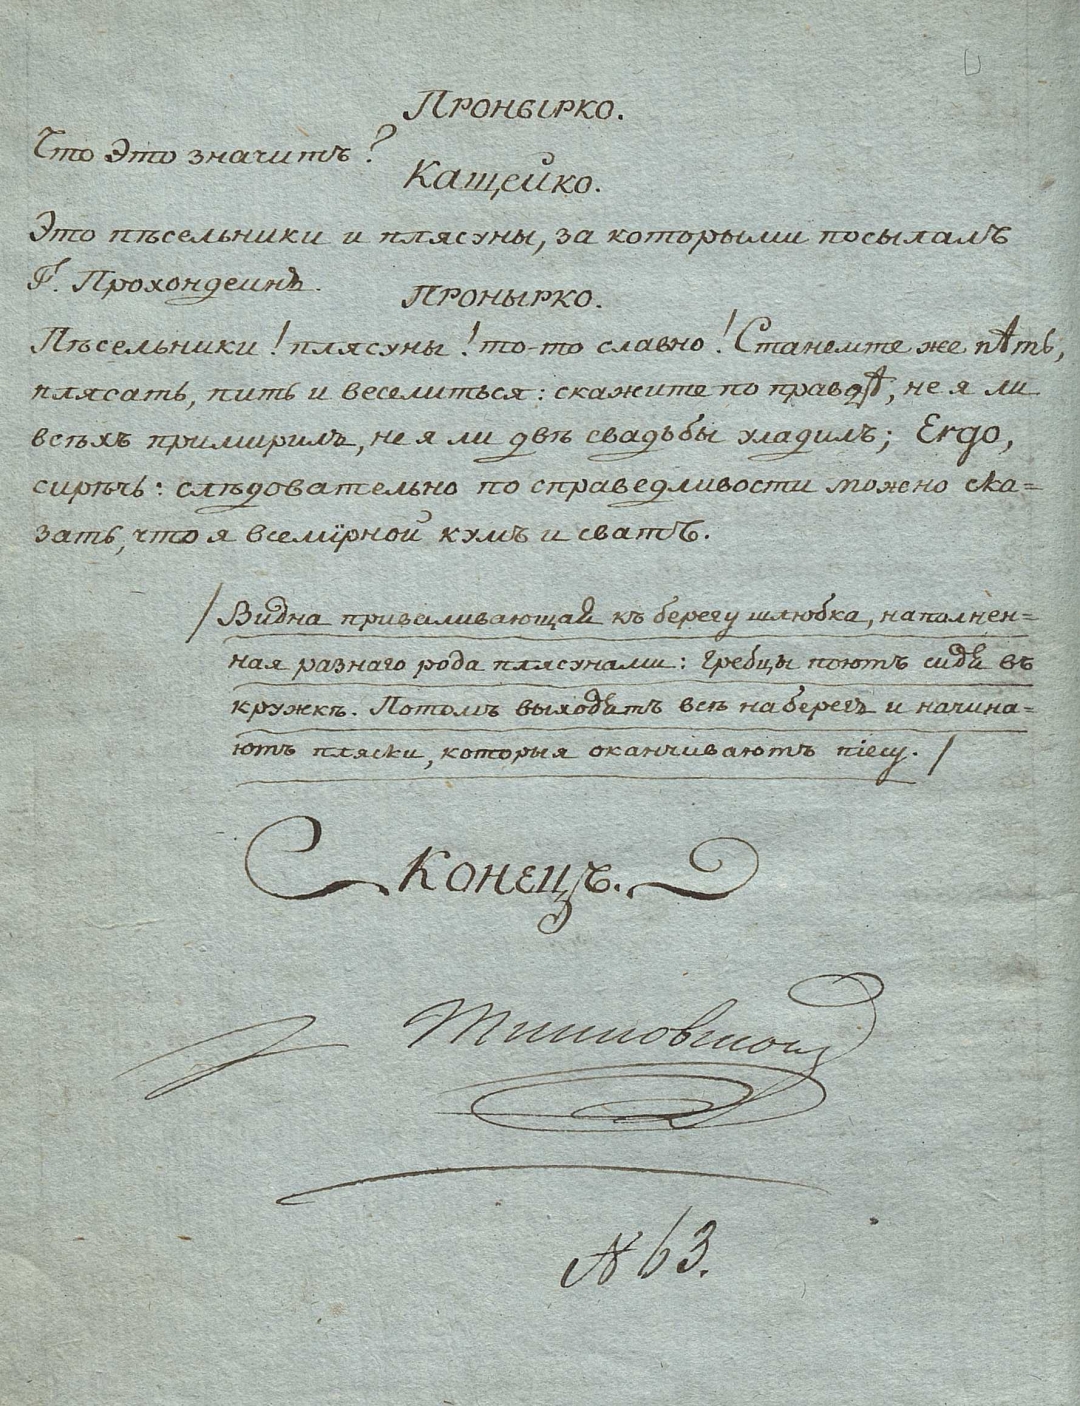 Пронырко.
Что Это значитъ?
Кащейко.
Это пѣсельники и плясуны, за которыми посылалъ
Г. Прохондеинъ.
Пронырко.
Пѣсельники! плясуны! то-то славно! Станемте же пѣть,
плясать, пить и веселиться: скажите по правдѣ, не я ли
всѣхъ примирилъ, не я ли двѣ свадьбы уладилъ; Ergo,
сирѣчь: слѣдовательно по справедливости можно ска=
зать, что я всемїрной кумъ и сватъ.
/Видна приваливающая къ берегу шлюбка, наполнен=
ная разнаго рода плясунами: гребцы поютъ сидя въ
кружкѣ. Потомъ выходятъ всѣ на берегъ и начина=
ютъ пляски, которыя оканчиваютъ піесу./
Конецъ.
N 63.